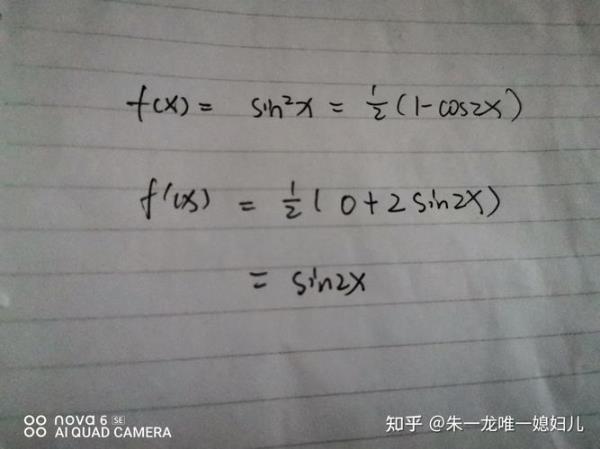 f(x) = sin²x = 1/2 (1-cos2x)
f'(x) = 1/2 ( 0+2sin2x)
= sin2x
nova 6 SE
AI QUAD CAMERA
知乎 @朱一龙唯一媳妇儿